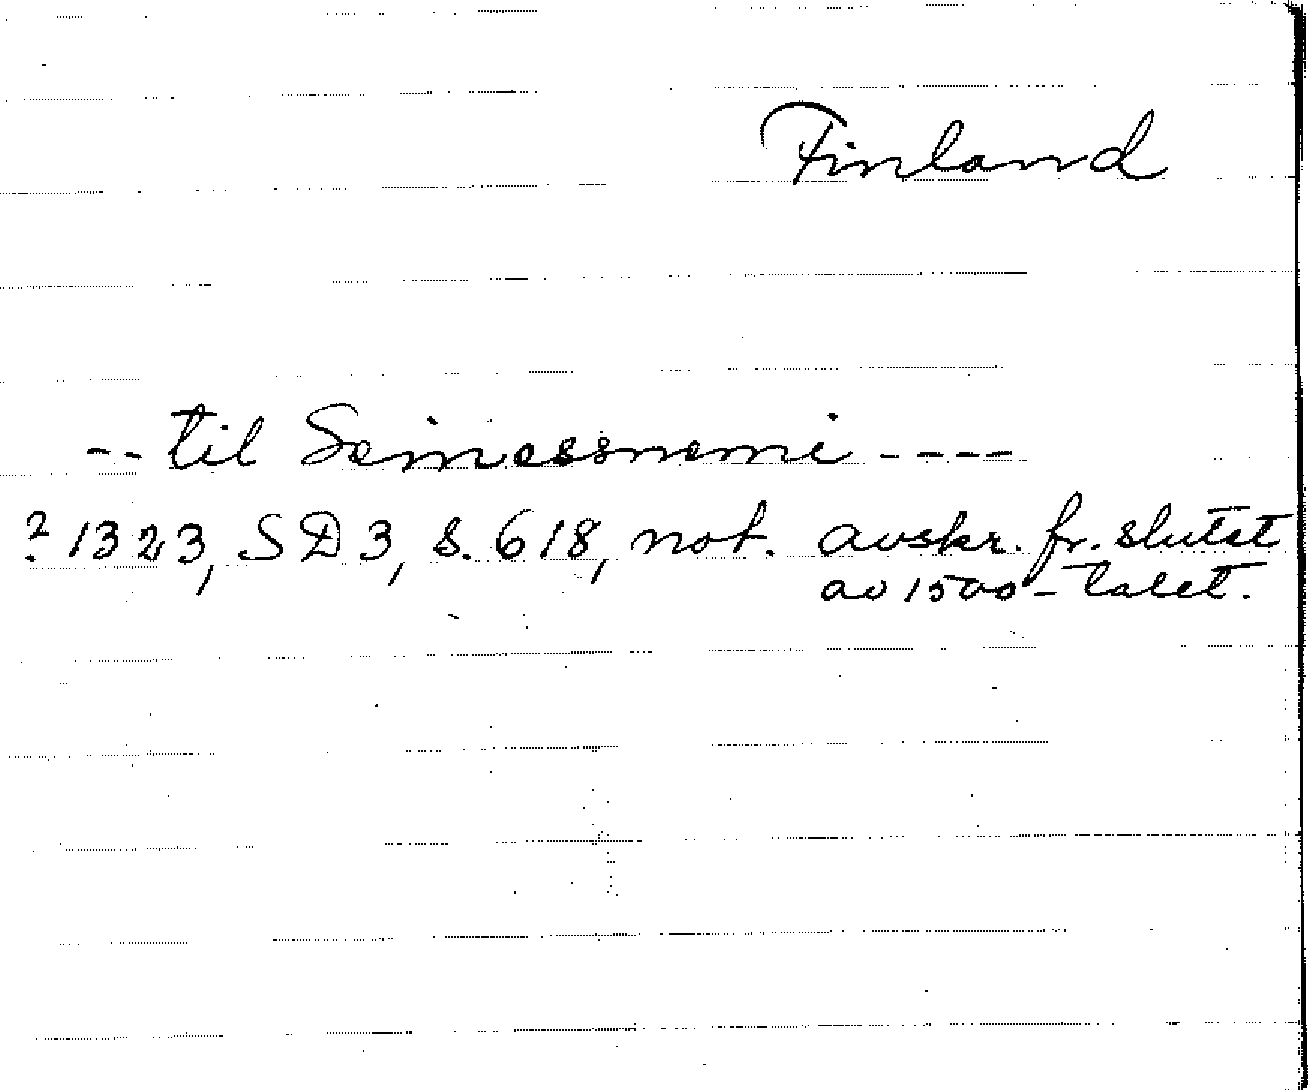 Finland
-- til Seimessnemi ----
? 1323, SD 3, s. 618, not. avskr. fr. slutet
av 1500-talet.